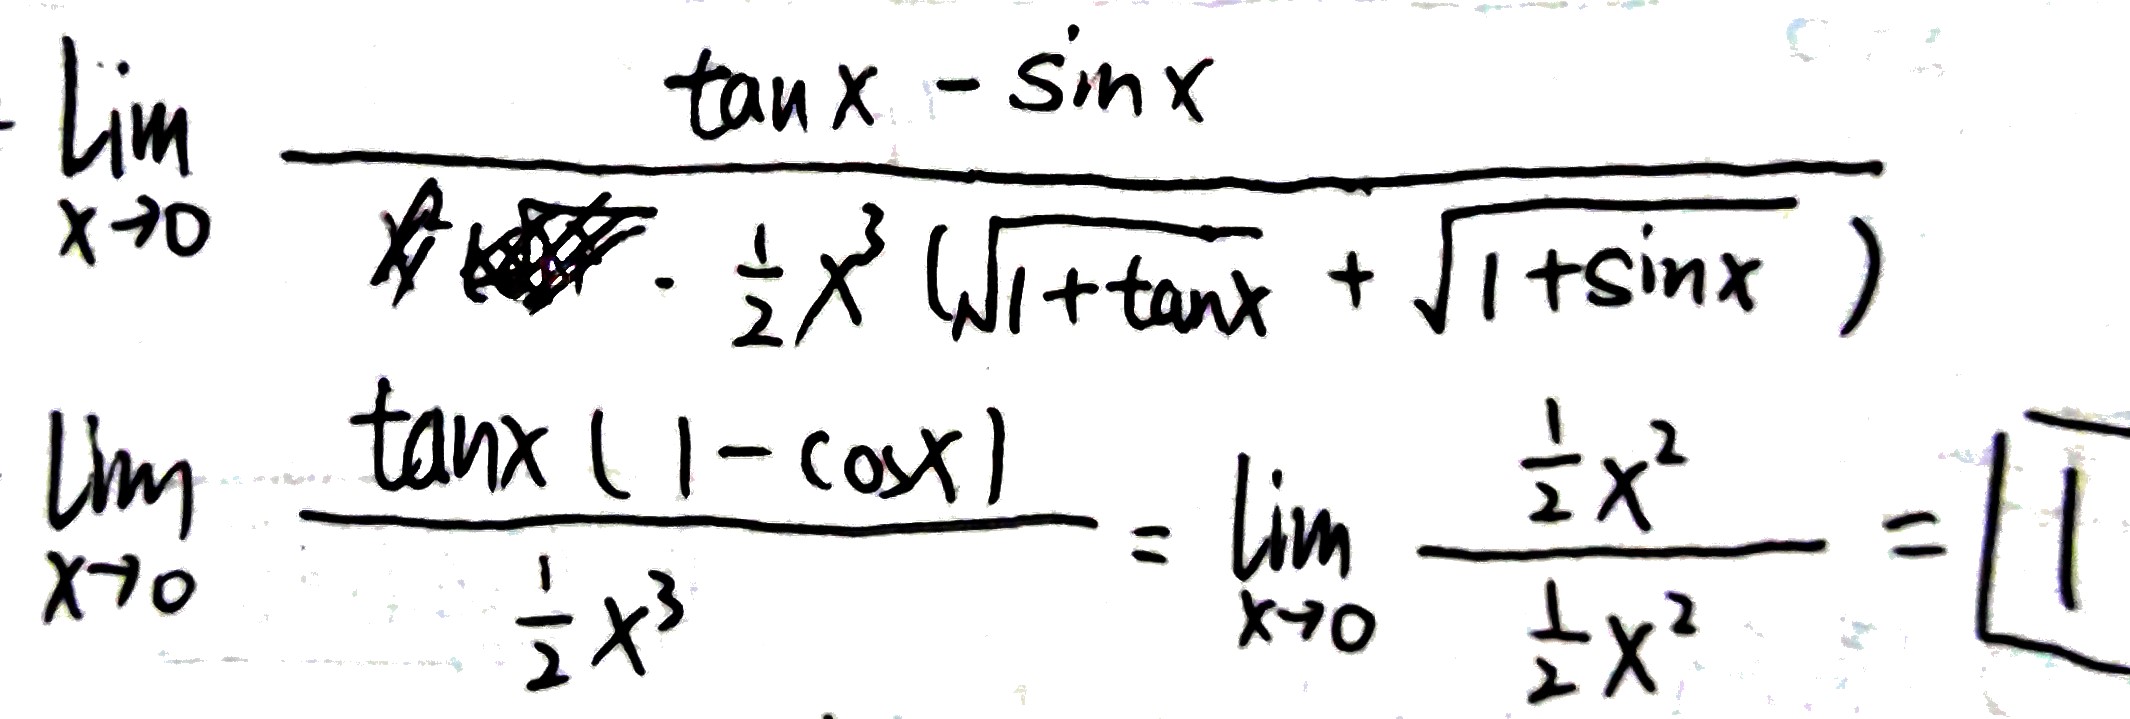 lim x→0 (tanx - sinx) / (· 1/2 x³ (√(1+tanx) + √(1+sinx)))
lim x→0 (tanx (1 - cosx)) / (1/2 x³) = lim x→0 (1/2 x²) / (1/2 x²) = 1